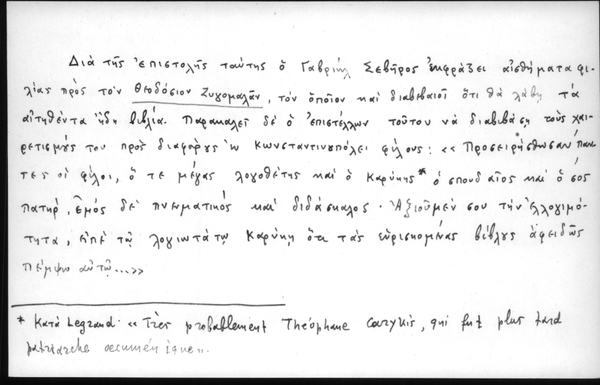 Διὰ τῆς ἐπιστολῆς ταύτης ὁ Γαβριὴλ Σεβῆρος ἐκφράζει αἰσθήματα φι-
λίας πρὸς τὸν Θεοδόσιον Ζυγομαλᾶν, τὸν ὁποῖον καὶ διαβεβαιοῖ ὅτι θὰ λάβῃ τὰ
αἰτηθέντα ἤδη βιβλία. Παρακαλεῖ δὲ ὁ ἐπιστέλλων τοῦτον νὰ διαβιβάσῃ τοὺς χαι-
ρετισμούς του πρὸς διαφόρους ἐν Κωνσταντινουπόλει φίλους: «Προσειρήσθωσαν πάν-
τες οἱ φίλοι, ὅ τε μέγας λογοθέτης καὶ ὁ Καρύκης* ὁ σπουδαῖος καὶ ὁ σὸς
πατήρ, ἐμὸς δὲ πνευματικὸς καὶ διδάσκαλος. Ἀξιοῦμέν σου τὴν ἐλλογιμό-
τητα, εἰπὲ τῷ λογιωτάτῳ Καρύκῃ ὅτι τὰς εὑρισκομένας βίβλους ἀφειδῶς
πέμψω αὐτῷ...»
* Κατὰ Legrand: «Très probablement Théophane Carykis, qui fut plus tard
patriarche oecuménique».